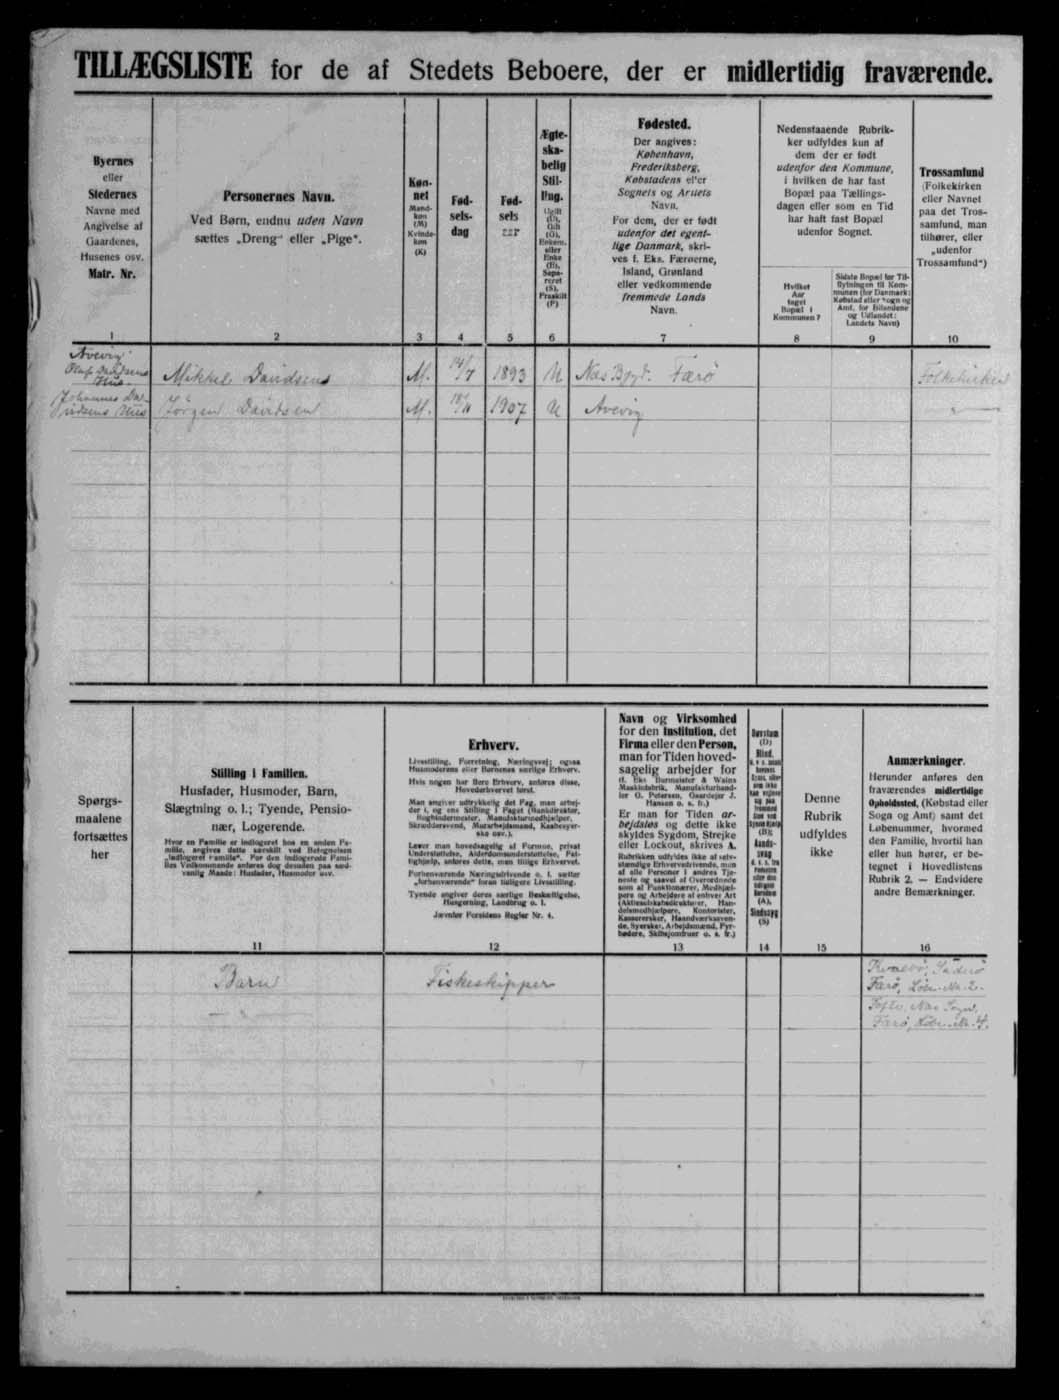 TILLÆGSLISTE for de af Stedets Beboere, der er midlertidig fraværende.
Byernes
eller
Stedernes
Navne med
Angivelse af
Gaardenes,
Husenes osv.
Matr. Nr.
1
Personernes Navn.
Ved Børn, endnu uden Navn
sættes „Dreng“ eller „Pige“.
2
Køn-
net
Mand-
køn
(M)
Kvinde-
køn
(K)
3
Fød-
sels-
dag
4
Fød-
sels
aar
5
Ægte-
ska-
belig
Stil-
ling.
Ugift
(U),
Gift
(G),
Enkem.
eller
Enke
(E),
Sepa-
reret
(S),
Fraskilt
(F)
6
Fødested.
Der angives:
København,
Frederiksberg,
Købstadens eller
Sognets og Amtets
Navn.
For dem, der er født
udenfor det egent-
lige Danmark, skri-
ves f. Eks. Færøerne,
Island, Grønland
eller vedkommende
fremmede Lands
Navn.
7
Nedenstaaende Rubrik-
ker udfyldes kun af
dem der er født
udenfor den Kommune,
i hvilken de har fast
Bopæl paa Tællings-
dagen eller som en Tid
har haft fast Bopæl
udenfor Sognet.
Hvilket
Aar
taget
Bopæl i
Kommunen?
8
Sidste Bopæl før Til-
flytningen til Kom-
munen (for Danmark:
Købstad eller Sogn og
Amt, for Bilandene
og Udlandet:
Landets Navn)
9
Trossamfund
(Folkekirken
eller Navnet
paa det Tros-
samfund, man
tilhører, eller
„udenfor
Trossamfund“)
10
Avevig
Oluf Davidsens
Hus
Mikkel Davidsens M. 14/7 1893 U Næs Bygd. Færø Folkekirken
Johannes Da-
vidsens Hus Jørgen Davidsen M. 1907 U Avevig
Spørgs-
maalene
fortsættes
her
Stilling i Familien.
Husfader, Husmoder, Barn,
Slægtning o. l.; Tyende, Pensio-
nær, Logerende.
Hvor en Familie er indlogeret hos en anden Fa-
milie, angives dette særskilt ved Betegnelsen
„indlogeret Familie“. For den indlogerede Fami-
lies Vedkommende anføres dog desuden paa sæd-
vanlig Maade: Husfader, Husmoder osv.
11
Erhverv.
Livsstilling, Forretning, Næringsvej; ogsaa
Husmoderens eller Børnenes særlige Erhverv.
Hvis nogen har flere Erhverv, anføres disse,
Hovederhvervet først.
Man angiver udtrykkelig det Fag, man arbej-
der i, og ens Stilling i Faget (Bankdirektør,
Bogbindermester, Manufakturmedhjælper,
Skræddersvend, Murarbejdsmand, Kaabesyer-
ske osv.).
Lever man hovedsagelig af Formue, privat
Understøttelse, Alderdomsunderstøttelse, Fat-
tighjælp, anføres dette, man tillige Erhvervet.
Forhenværende Næringsdrivende o. l. sætter
„forhenværende“ foran tidligere Livsstilling.
Tyende angiver deres særlige Beskæftigelse,
Husgerning, Landbrug o. l.
Jævnfør Forsidens Regler Nr. 4.
12
Navn og Virksomhed
for den Institution, det
Firma eller den Person,
man for Tiden hoved-
sagelig arbejder for
(f. Eks Burmeister & Wains
Maskinfabrik, Manufakturhand-
ler O. Petersen, Gaardejer J.
Hansen o. s. fr.)
Er man for Tiden ar-
bejdsløs og dette ikke
skyldes Sygdom, Strejke
eller Lockout, skrives A.
Rubrikken udfyldes ikke af selv-
stændige Erhvervsdrivende, men
af alle Personer i andres Tje-
neste og saavel af Overordnede
som af Funktionærer, Medhjæl-
pere og Arbejdere af enhver Art
(Aktieselskabsdirektører, Han-
delsmedhjælpere, Kontorister,
Kassererske, Haandværkssven-
de, Syersker, Arbejdsmænd, Fyr-
bødere, Skibsjomfruer o. s. fr.)
13
Døvstum
(D)
Blind,
(B);
Aands-
svag
(A),
Sindssyg
(S)
14
Denne
Rubrik
udfyldes
ikke
15
Anmærkninger.
Herunder anføres den
fraværendes midlertidige
Opholdssted, (Købstad eller
Sogn og Amt) samt det
Løbenummer, hvormed
den Familie, hvortil han
eller hun hører, er be-
tegnet i Hovedlistens
Rubrik 2. — Endvidere
andre Bemærkninger.
16
Barn Fiskeskipper Kvalbø, Suderø
Færø, Løbe-Nr. 2.
Næs Sogn,
Færø, Løbe-Nr. 4.